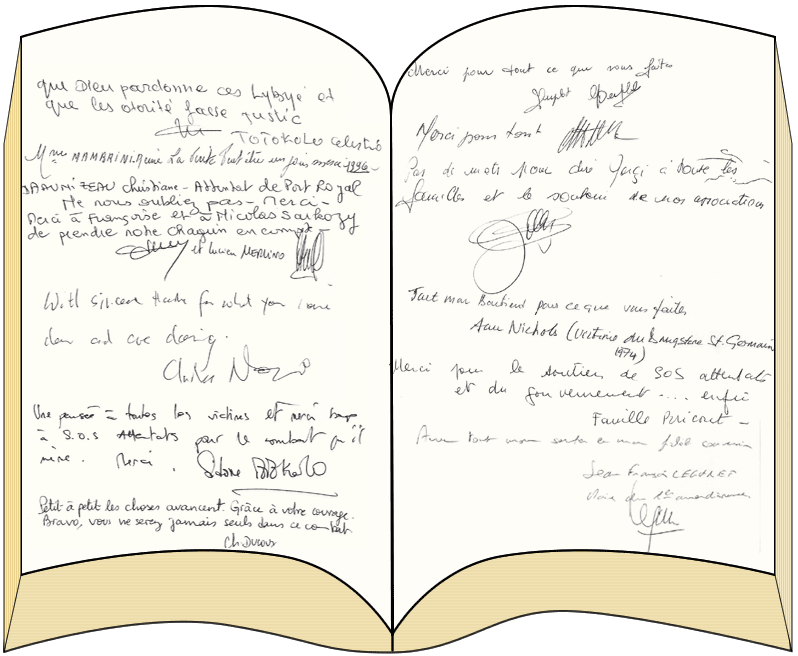 que Dieu pardonne ces Lybyé et
que les otorité fasse justic
TOTOKOLO Celestin
Mme MAMBRINI
1996
Christiane - Attentat de Port Royal
Ne nous oubliez pas - Merci -
Merci à Françoise et à Nicolas Sarkozy
de prendre notre chagrin en compte -
et Lucien MERLINO
With sincere thanks for what you have
done and are doing.
Une pensée à toutes les victimes et merci
à S.O.S Attentats pour le combat qu'il
mène. Merci.
Petit à petit les choses avancent. Grâce à votre courage.
Bravo, vous ne serez jamais seuls dans ce combat.
Ch. Duroux
Merci pour tout ce que vous faites
Merci pour tout
Pas de mots pour dire merci à toute les
familles et le soutien de nos associations
Tout mon soutient pour ce que vous faites
Nichols (victime du Drugstore St. Germain
1974)
Merci pour le soutien de SOS attentats
et du gouvernement .... enfin
Famille Pericout -
Avec tout mon soutien et mon fidel souvenir
Jean François LEGARET
Maire du 1er arrondissement